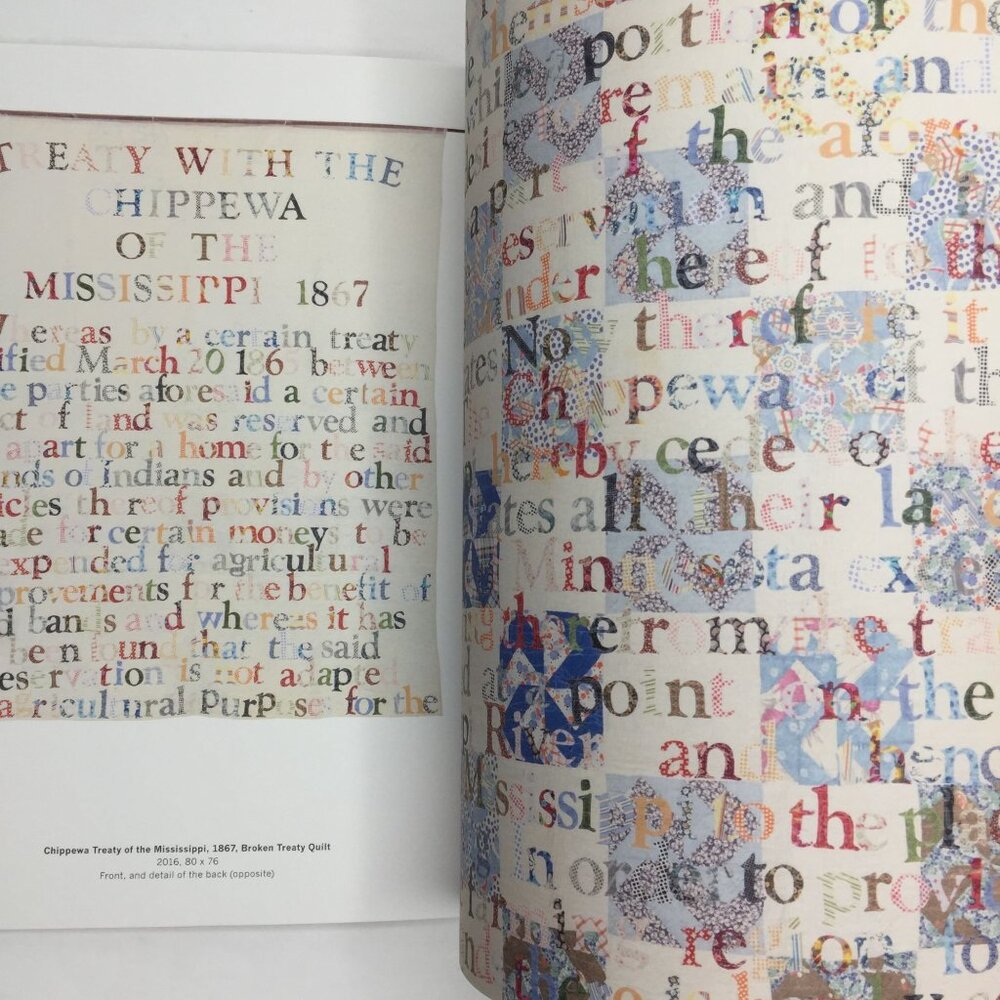 TREATY WITH THE
CHIPPEWA
OF THE
MISSISSIPPI 1867
hereas by a certain treaty
ified March 20 186 between
e parties aforesaid a certain
ct of land was reserved and
apart for a home for the said
nds of Indians and by other
icles thereof provisions were
ade for certain moneys to be
expended for agricultural
provements for the benefit of
d bands and whereas it has
been found that the said
eservation is not adapted
agricultural Purposes for the
Chippewa Treaty of the Mississippi, 1867, Broken Treaty Quilt
2016, 80 x 76
Front, and detail of the back (opposite)
portion of the
remain and
of the afor
apart
eservation and
under hereof to th
No therefore it
Chippewa of th
hereby cede to the
ates all their la
Minnesota except
therefrom the t
point on the
River and thenc
Mississippi to the pla
In order to provi
re